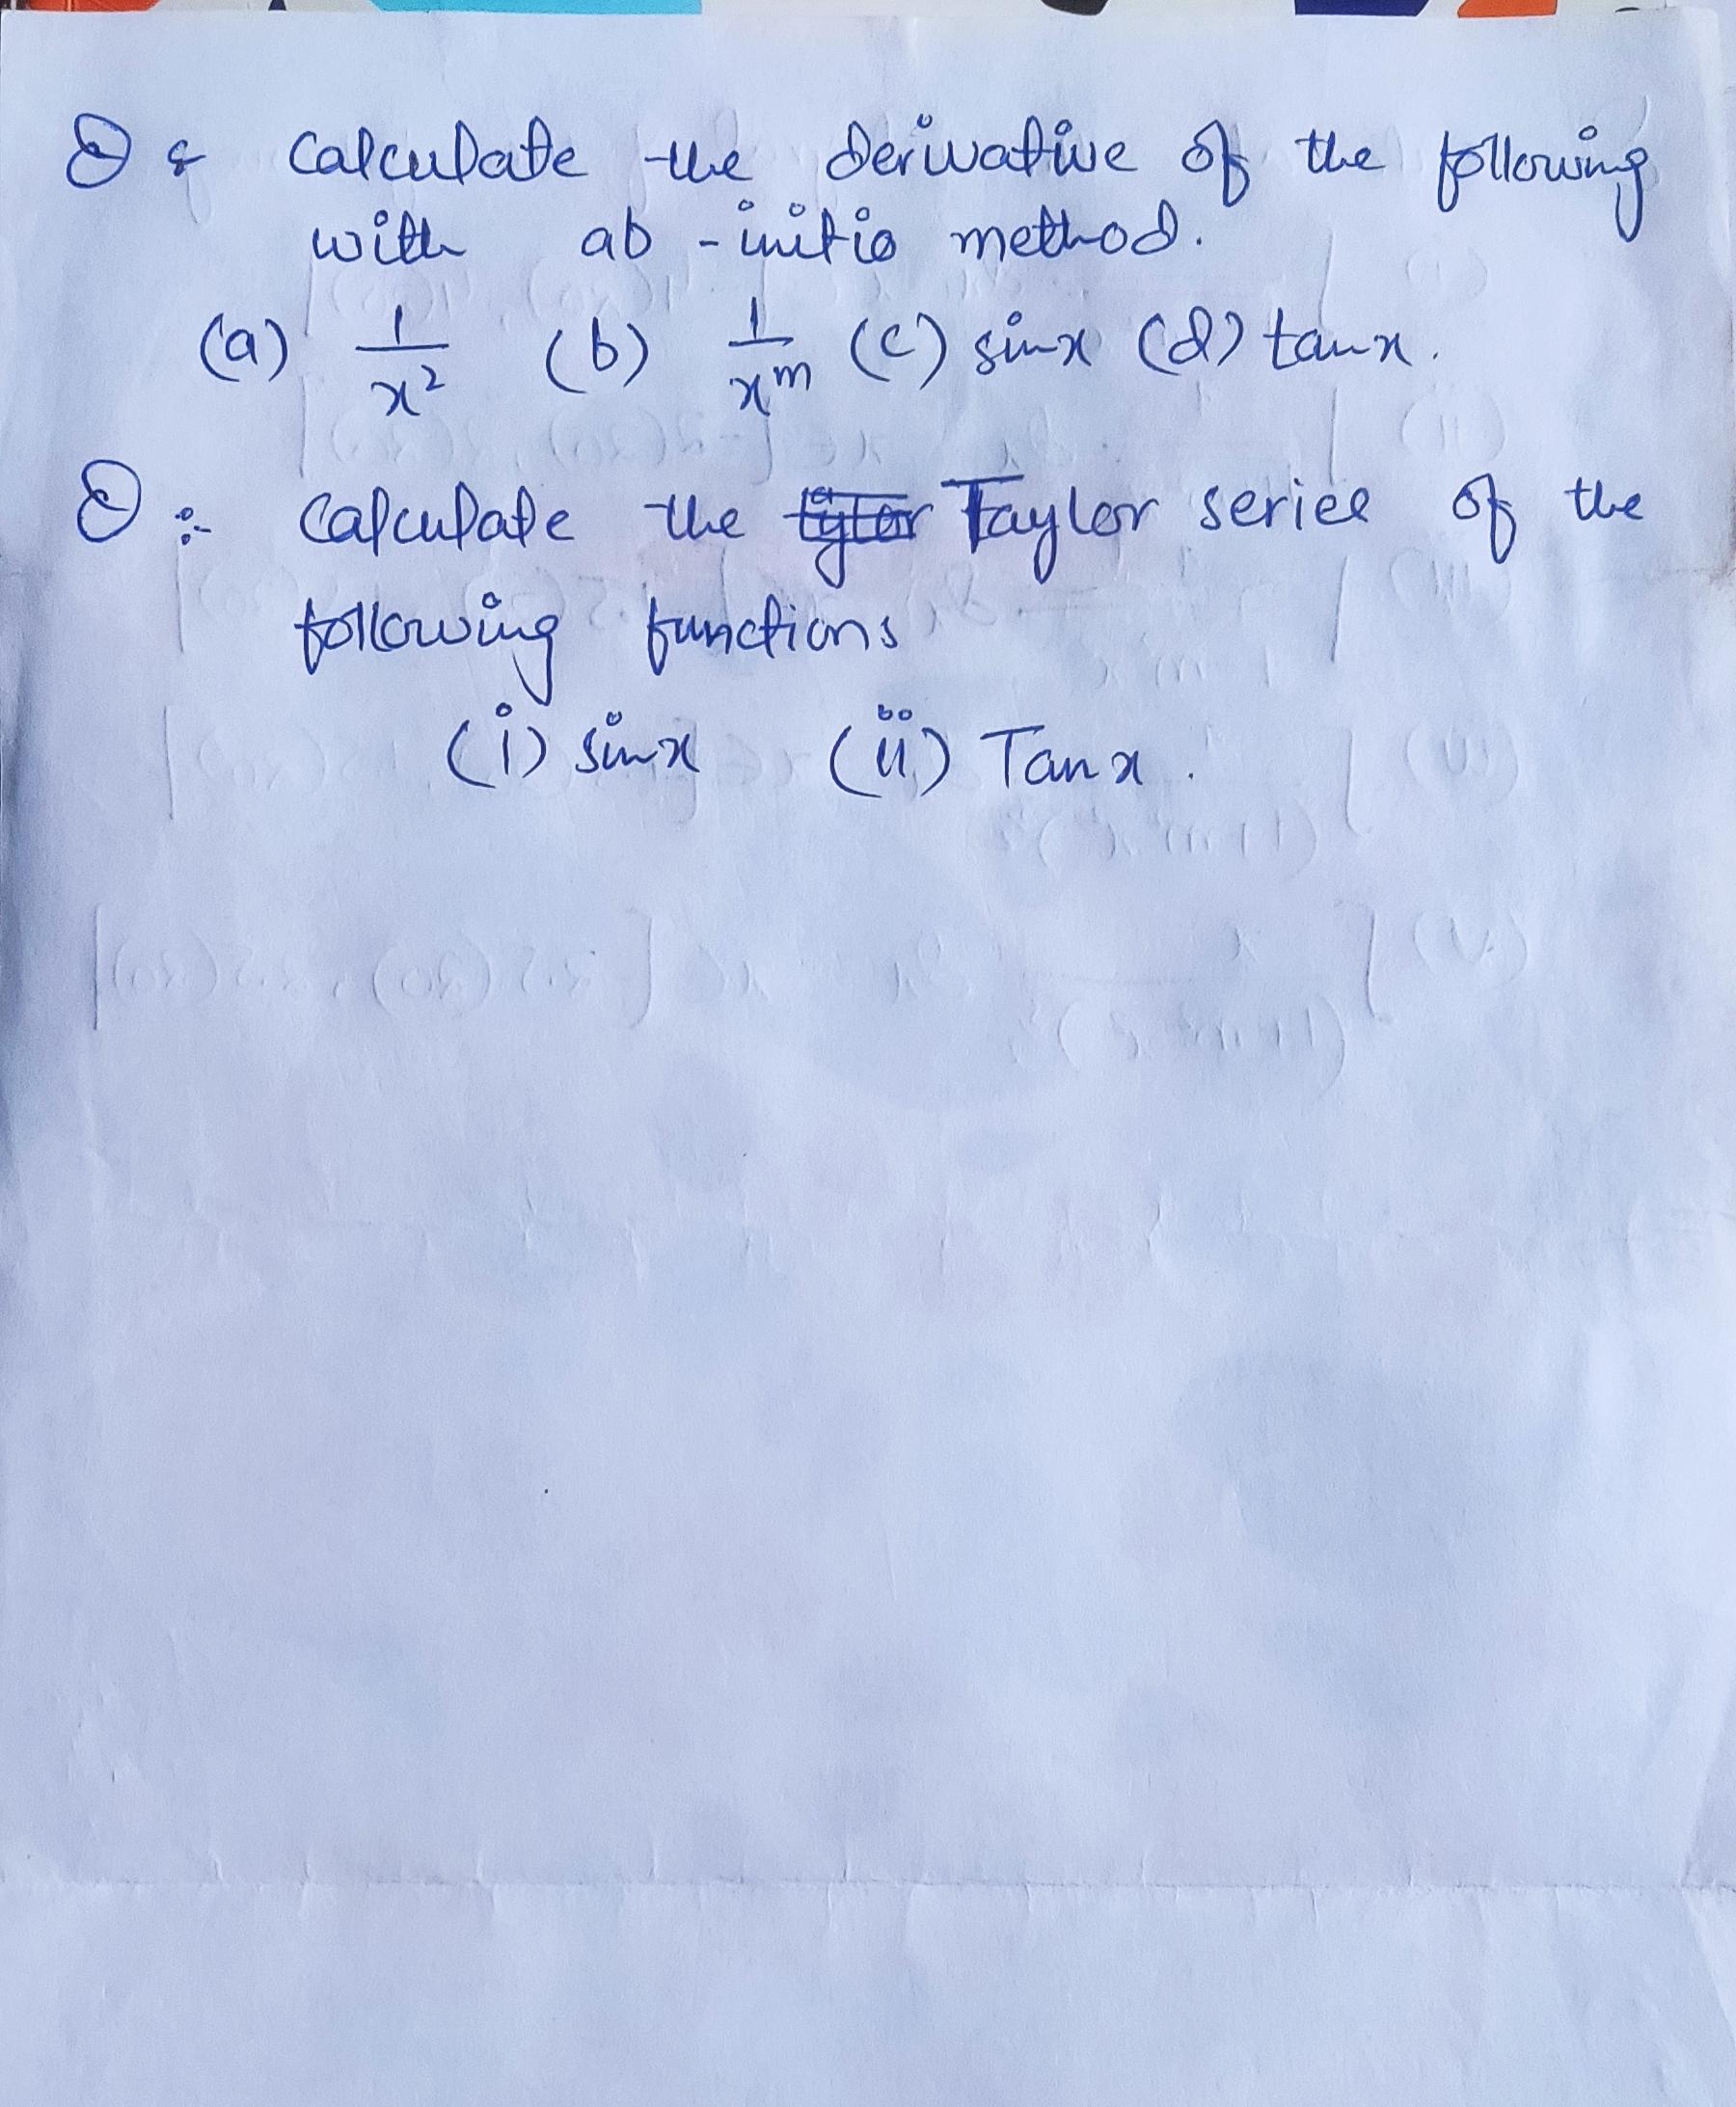 Q: Calculate the derivative of the following
with ab-initio method.
(a) 1/x² (b) 1/xᵐ (c) sinx (d) tanx.
Q:- Calculate the Taylor series of the
following functions
(i) sinx (ii) Tanx.